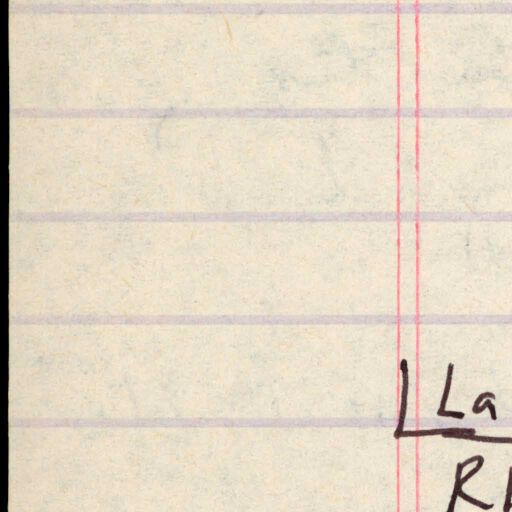 La
R